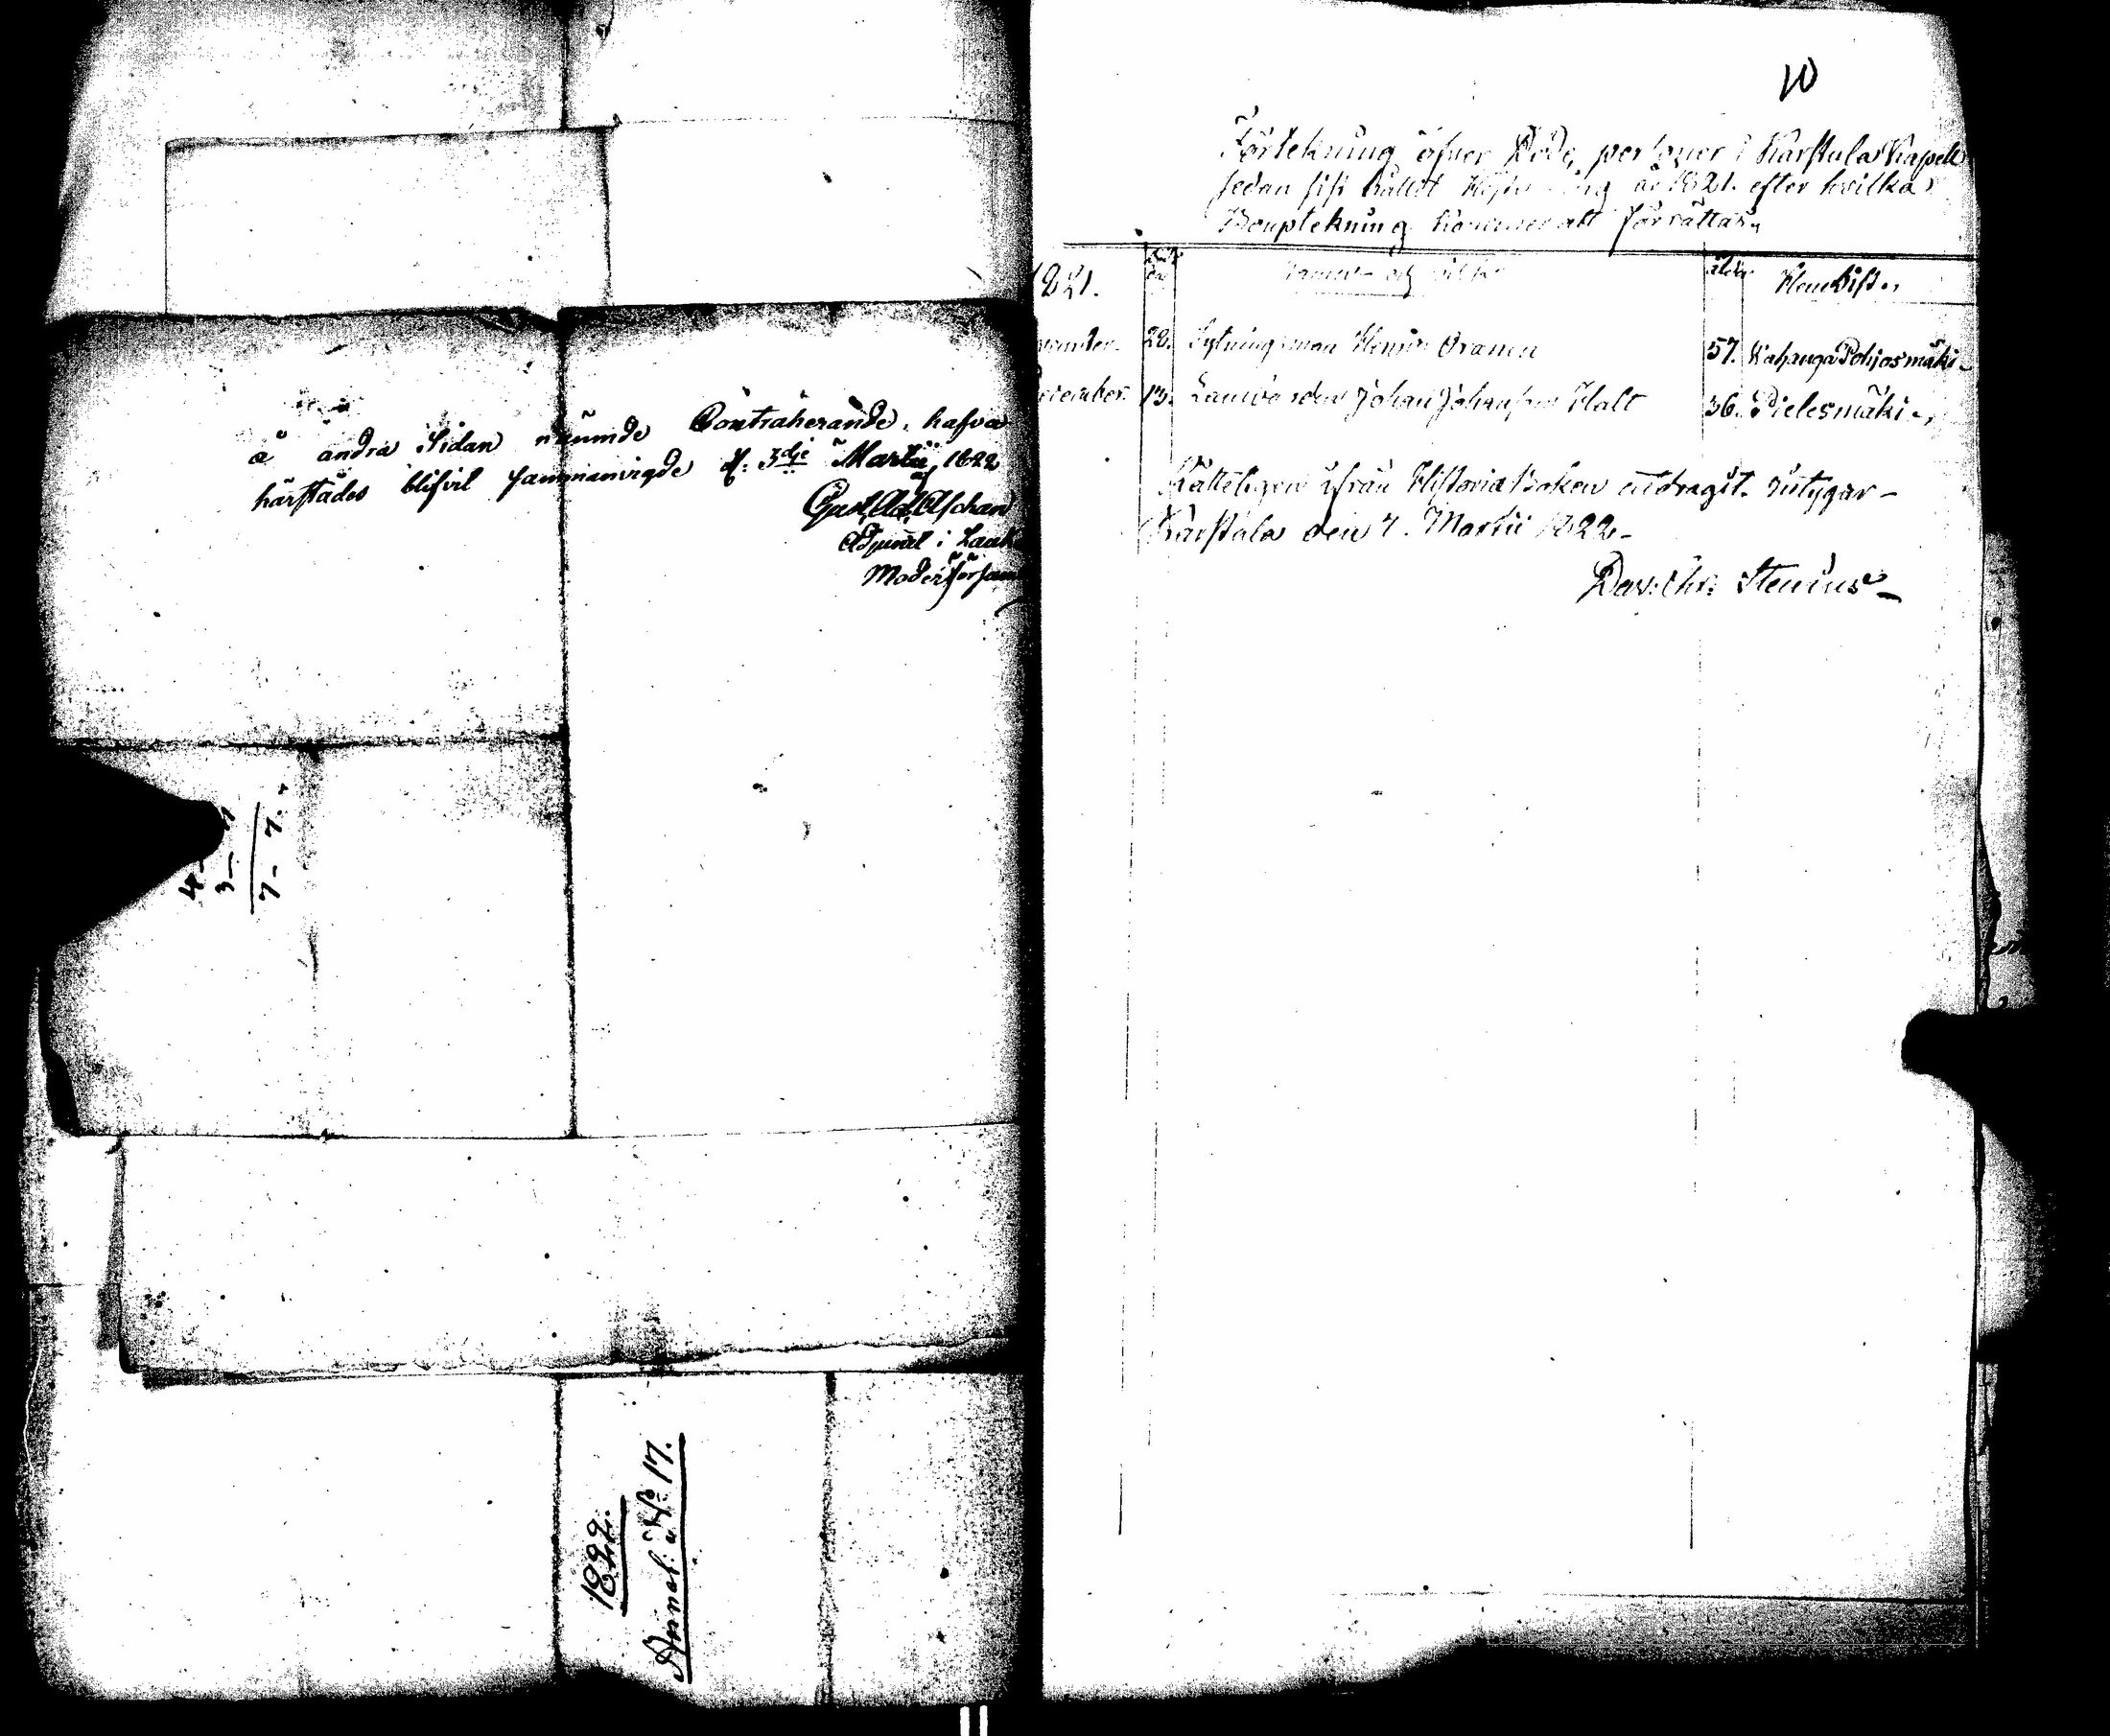 å andra Sidan nämnde Contraherande, hafva
härstädes blifvit sammanvigde d: 3dje Martii 1822
Gust. Ad.
Adjunct i Lauk
Moderförsam
4-
3-
7- 7.
1822.
Anmäl. a No 17.
10
Förtekning öfver Döde personer i Karstula Kapell
sedan sist hållit år 1821. efter hvilka
Bouptekning kommer att förrättas.
1821. Namn och ålder Hemvist.
28. Sytningsman Henric Oranen 57. Wahanga Pohjosmäki.
December. 13. Johan Johansson Halt 36. Pielesmäki.
Rätteligen ifrån Historiæ Boken utdragit. intygar
Karstula den 7. Martii 1822.
Dav: Chr: Stenius